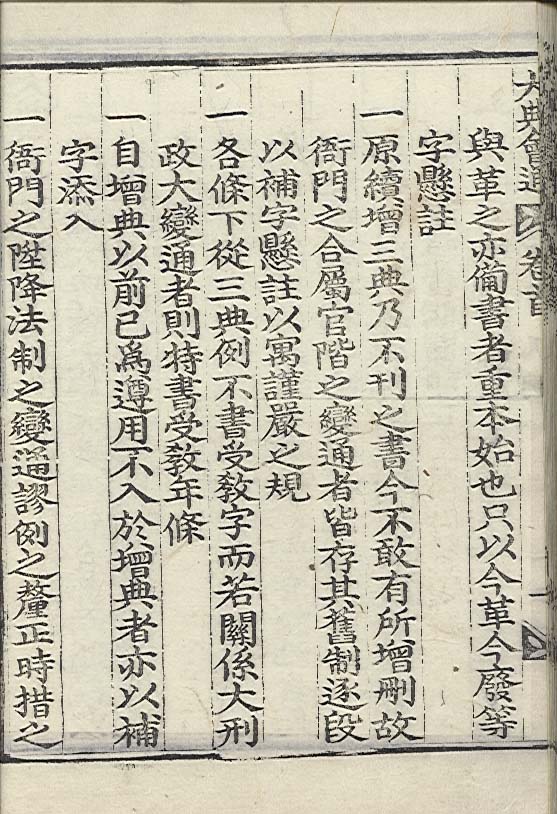 大典會通 卷首
與革之亦備書者重本始也只以今革今廢等
字懸註
一原續增三典乃不刊之書今不敢有所增刪故
衙門之合屬官階之變通者皆存其舊制逐段
以補字懸註以寓謹嚴之規
一各條下從三典例不書受敎字而若關係大刑
政大變通者則特書受敎年條
一自增典以前已爲遵用不入於增典者亦以補
字添入
一衙門之陞降法制之變通謬例之釐正時措之